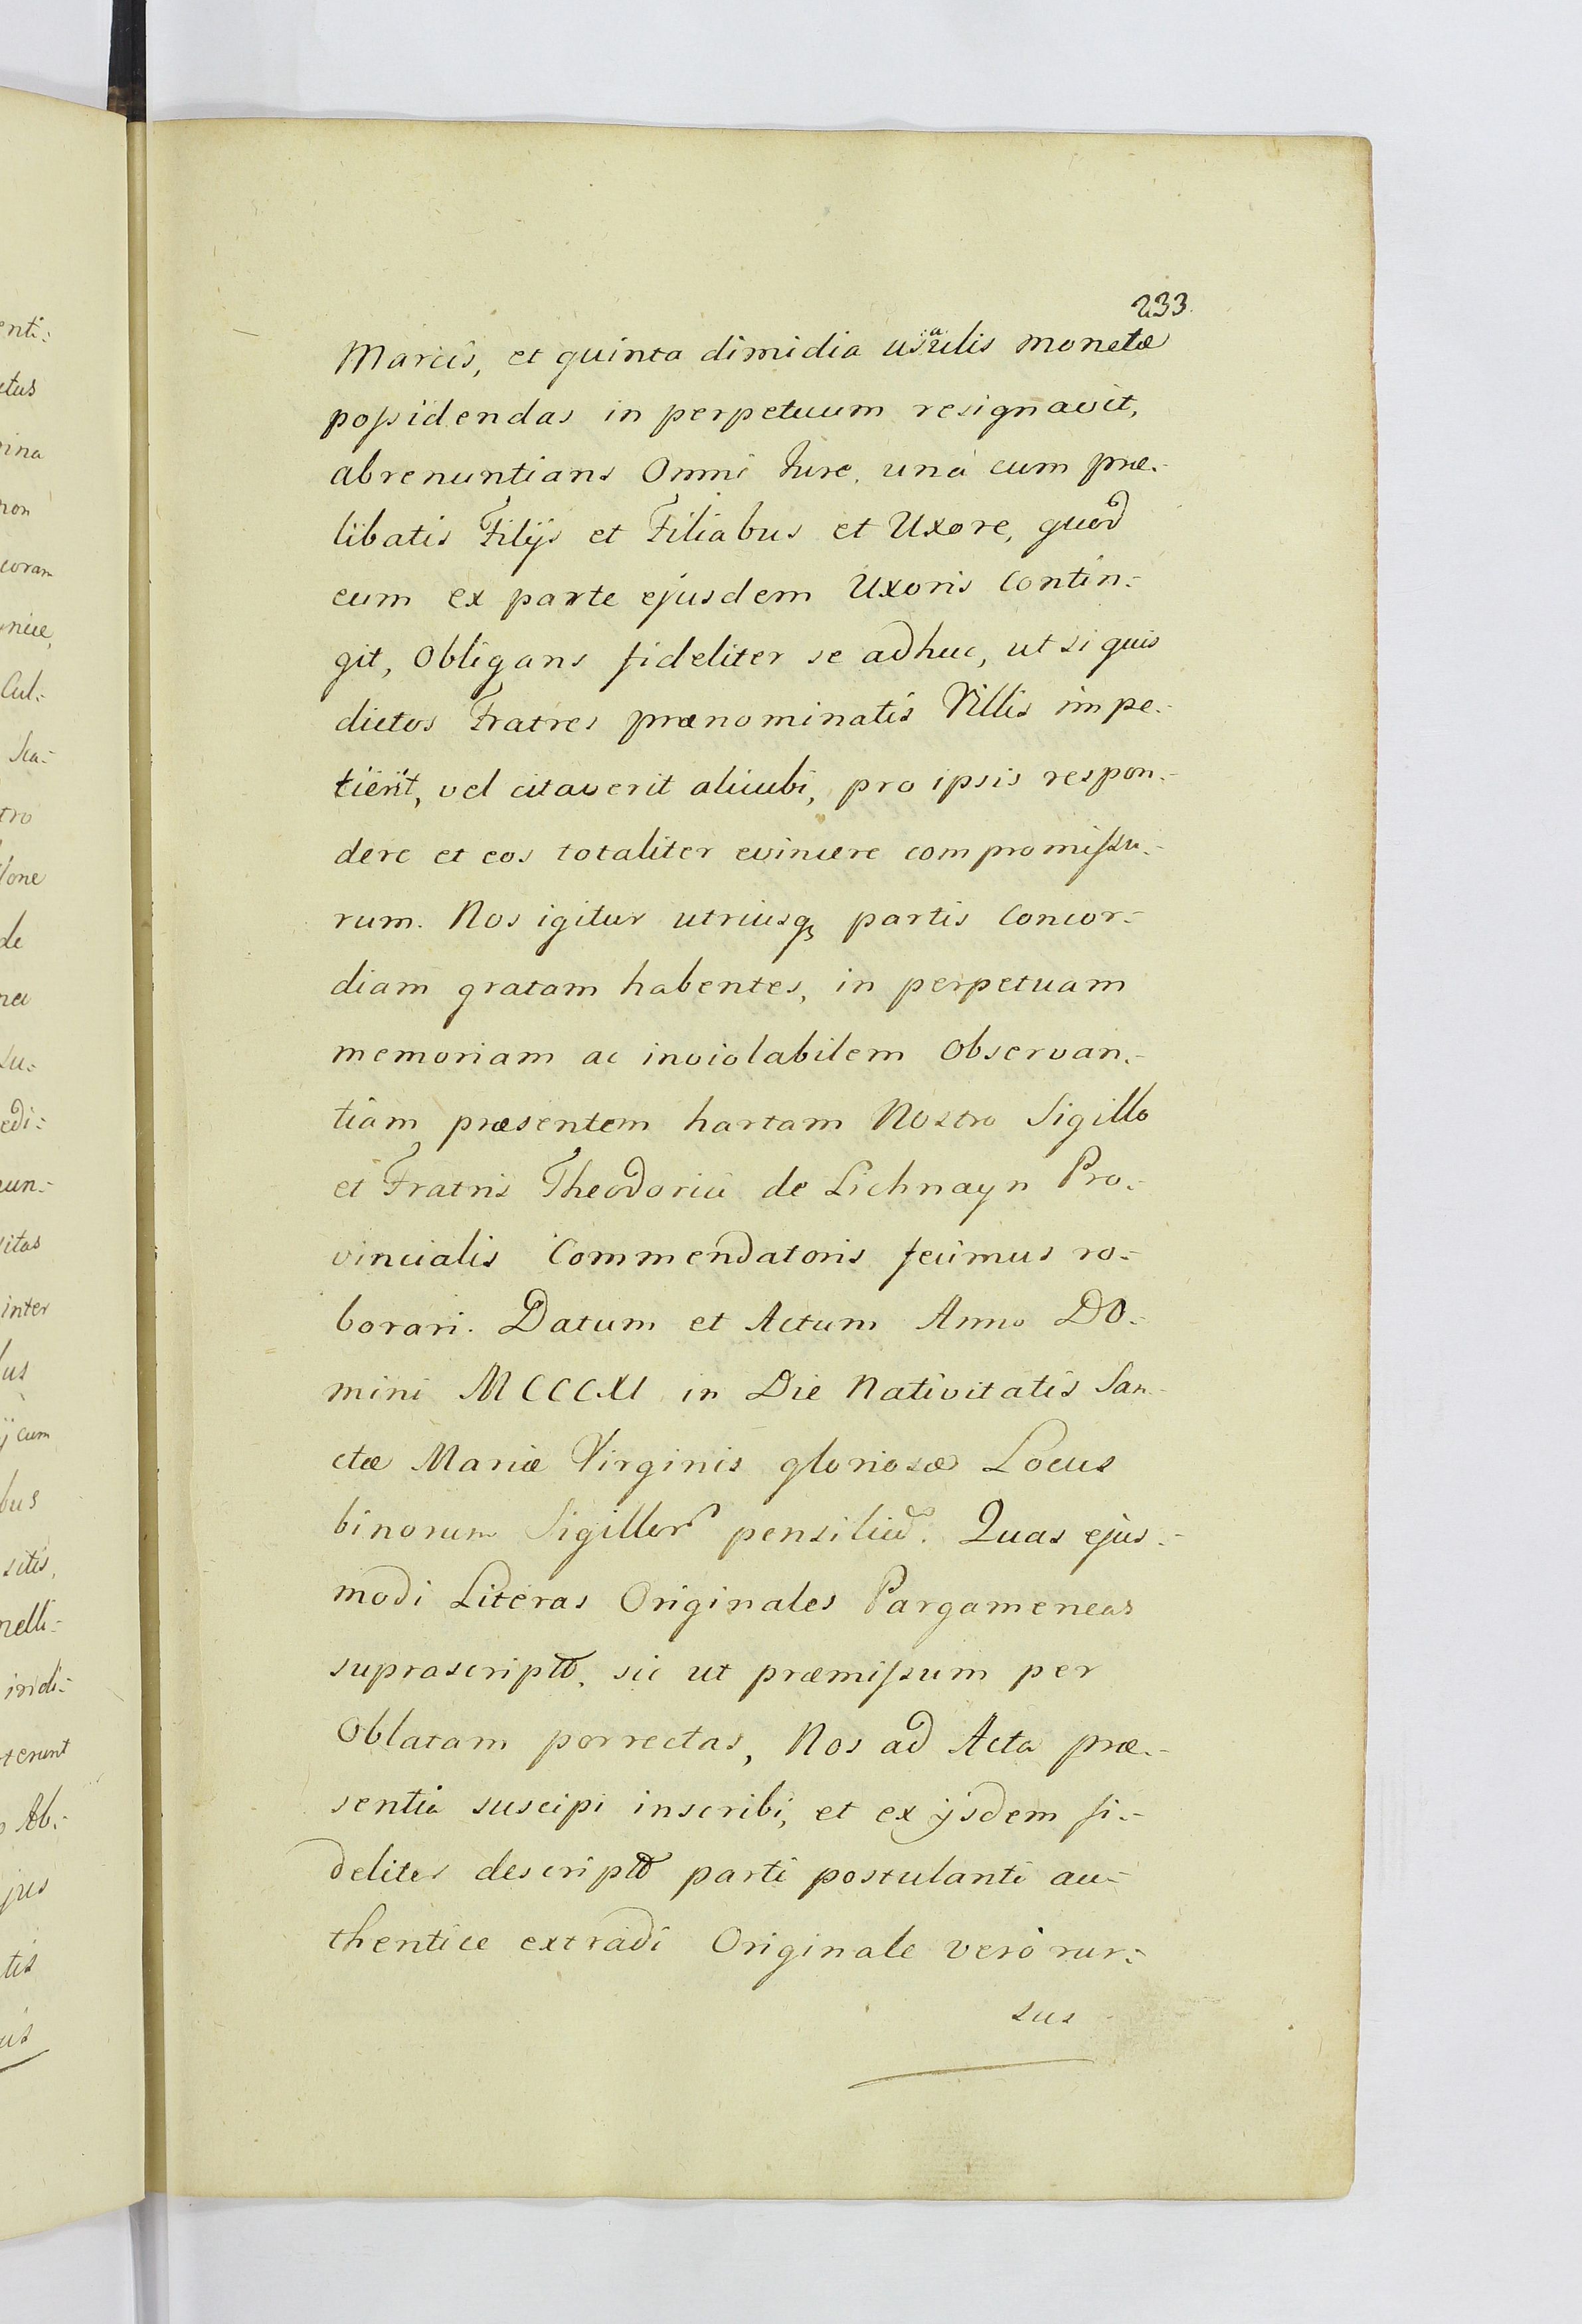 233.
Marcis, et quinta dimidia usualis monetæ
possidendas in perpetuum resignavit,
abrenuntians Omni Jure, unà cum præ-
libatis Filijs et Filiabus et Uxore, quod
eum ex parte ejusdem Uxoris contin-
git, Obligans fideliter se adhuc, ut si quis
dictos Fratres prænominatis Villis impe-
tierit, vel citaverit alicubi, pro ipsis respon-
dere et eos totaliter evincere compromissu-
rum. Nos igitur utriusq; partis concor-
diam gratam habentes, in perpetuam
memoriam ac inviolabilem observan-
tiam præsentem hartam Nostro Sigillo
et Fratris Theodorici de Lichnayn Pro-
vincialis Commendatoris fecimus ro-
borari. Datum et Actum Anno DO-
mini MCCCXI in Die Nativitatis San-
ctæ Mariæ Virginis gloriosæ Locus
binorum Sigillor pensiliũ. Quas ejus-
modi Literas Originales Pargameneas
suprascriptas, sic ut præmissum per
Oblatam porrectas, Nos ad Acta præ-
sentia suscipi inscribi, et ex ijsdem fi-
deliter descriptas parti postulanti au-
thentice extradi Originale verò rur-
sus
enti-
ctus
vina
non
coram
Cul-
Sca-
tro
de
su-
edi-
itas
inter
ij cum
bus
sitis,
nelli-
indi-
terunt
Ab-
jus
tis